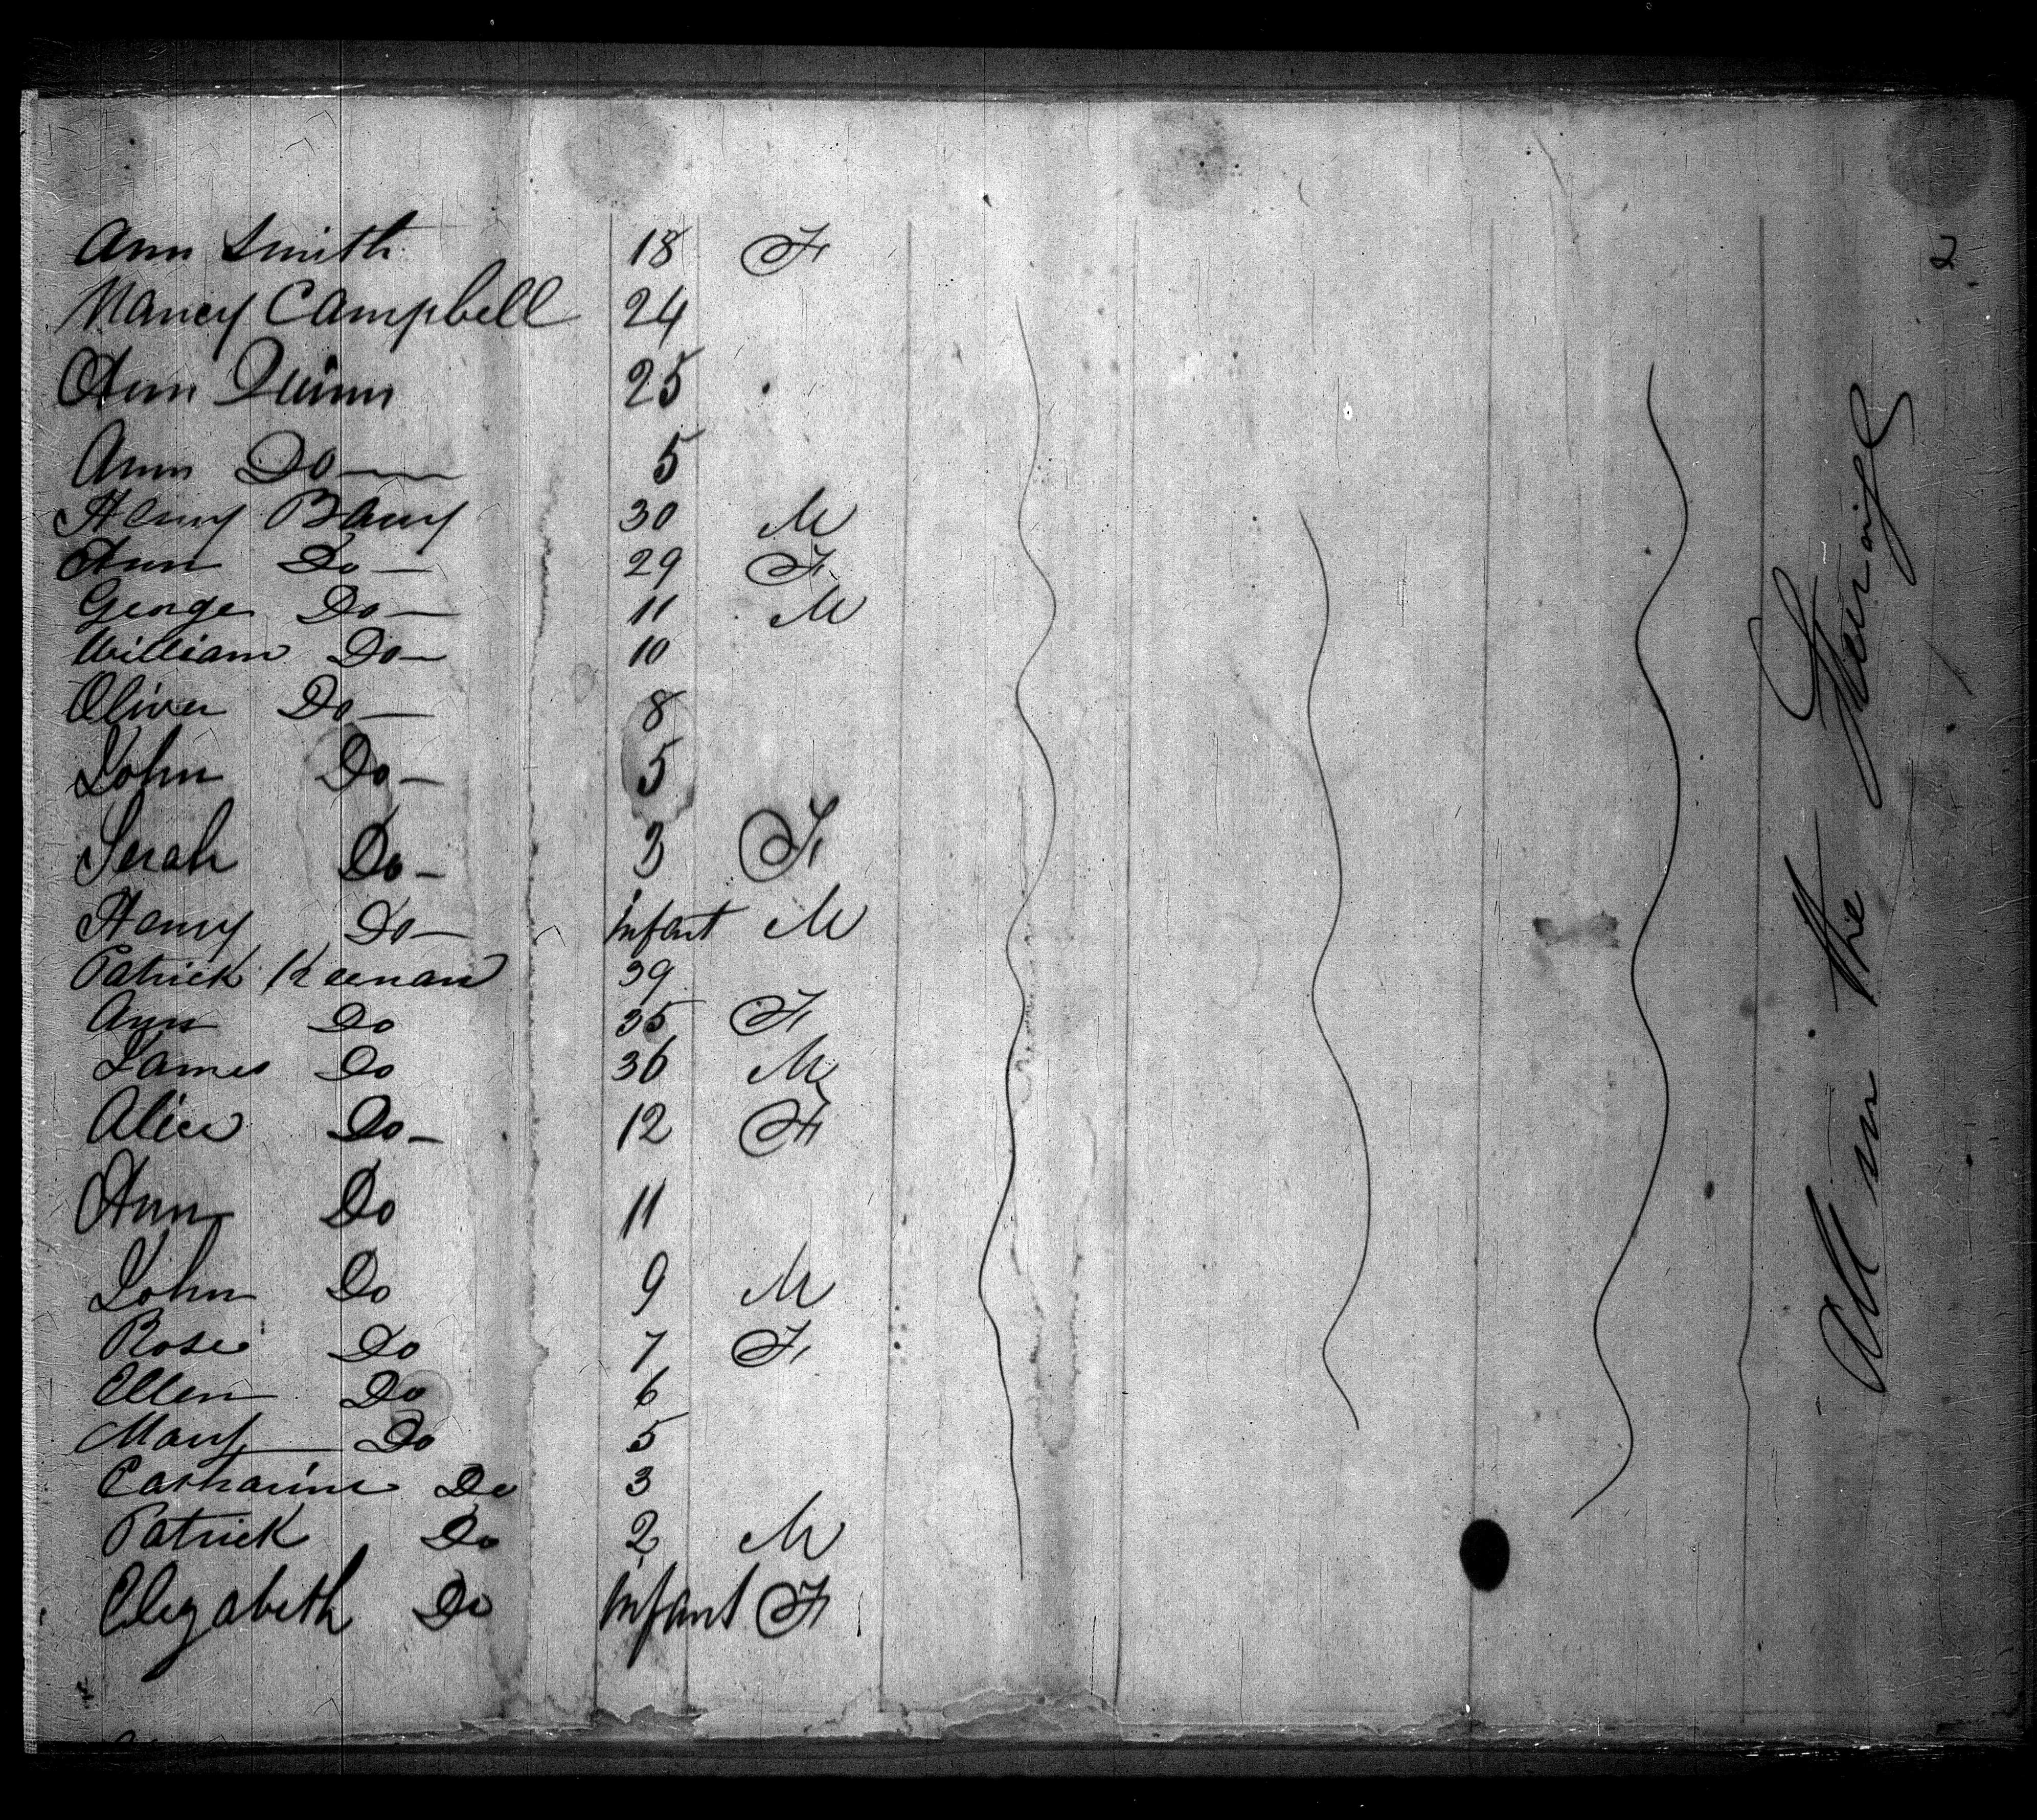 Ann Smith 18 F
Nancy Campbell 24
Ann Quinn 25
Ann Do 5
Henry Barry 30 M
Ann Do 29 F
George Do 11 M
William Do 10
Oliver Do 8
John Do 5
Serah Do 3 F
Henry Do Infant M
Patrick Keenan 39
Ann Do 35 F
James Do 36 M
Alice Do 12 F
Ann Do 11
John Do 9 M
Rose Do 7 F
Ellen Do 6
Mary Do 5
Catharine Do 3
Patrick Do 2 M
Elizabeth Do Infant F
All in the Steerage
2